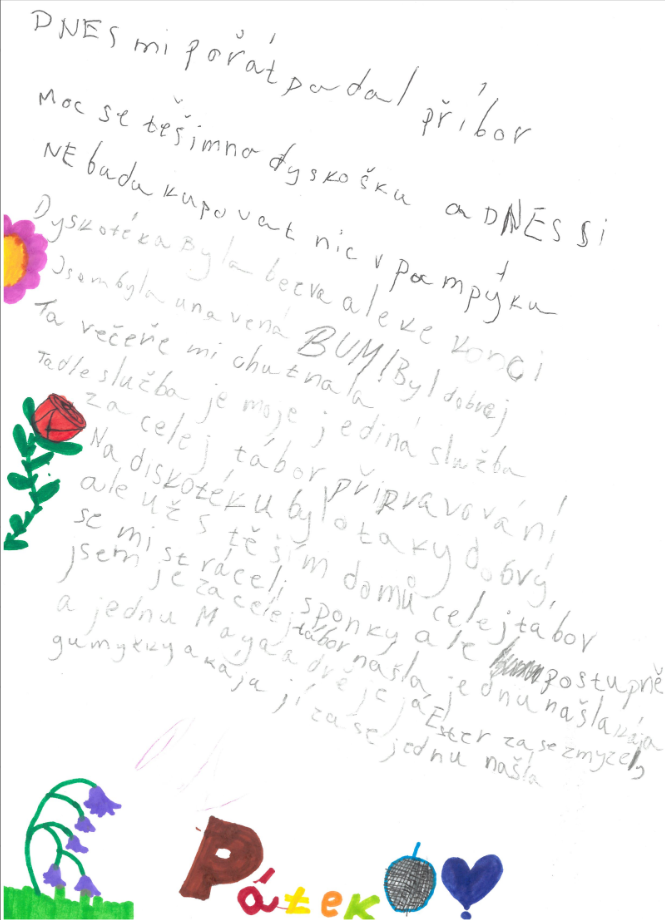 DNES mi pořát padal příbor
Moc se těšimna dyskošku a DNES si
NEbudu kupovat nic v pampýku
Dyskotéka Byla becva ale ke konci
Jsem byla unavená BUM! Byl dobrej
Ta večeře mi chutnala
Tadle služba je moje jediná služba
za celej tábor připravování
Na diskotéku bylo taky dobrý,
ale už s těším domů celej tábor
se mi stráceli sponky ale postupně
jsem je za celej tábor našla jednu našla kája
a jednu Maya a dvě je já Ester zase zmyzely
gumyčky a kája jí zase jednu našla
Pátek